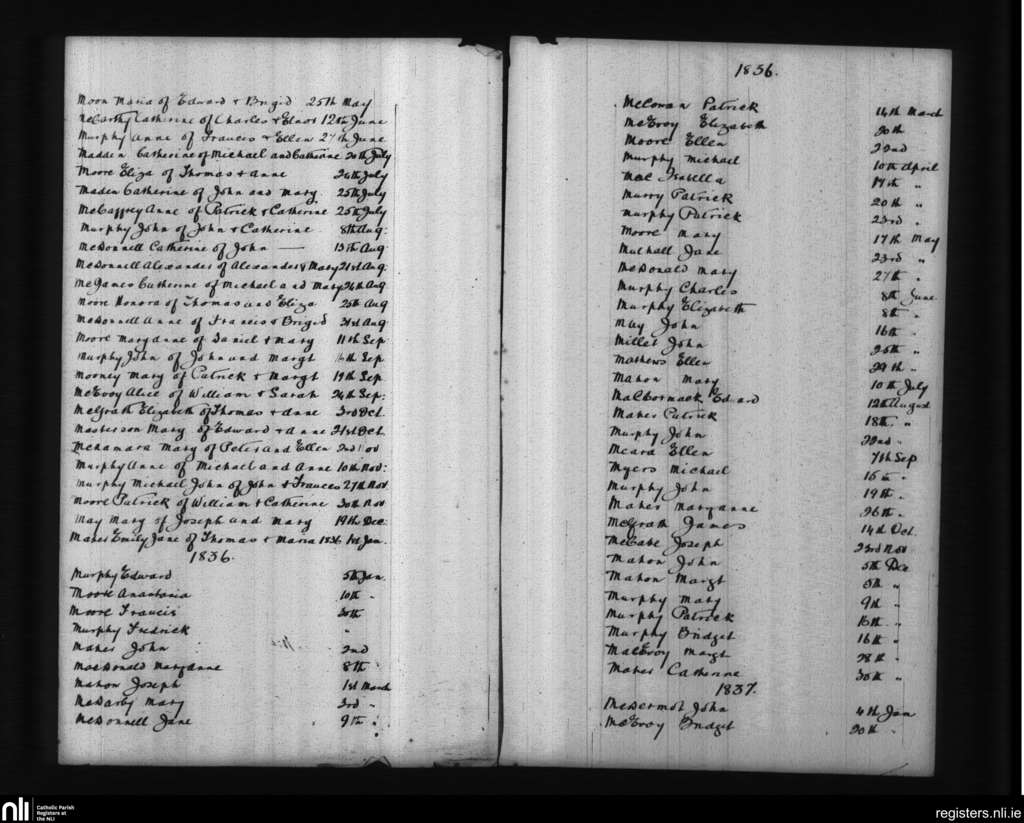 Moon Maria of Edward & Brigid 25th May
McCarthy Catherine of Charles & Elnor 12th June
Murphy Anne of Francis & Ellen 27th June
Madden Catherine of Michael and Catherine 20th July
Moore Eliza of Thomas & Anne 24th July
Maden Catherine of John and Mary 25th July
McCaffrey Anne of Patrick & Catherine 25th July
Murphy John of John & Catherine 8th Aug:
McDonnell Catherine of John — 13th Aug
McDonnell Alexander of Alexander & Mary 21st Aug:
McGanes Catherine of Michael and Mary 24th Aug
Moore Honora of Thomas and Eliza 25th Aug
McDonnell Anne of Francis & Briged 31st Aug
Moore Maryanne of Daniel & Mary 11th Sep
Murphy John of John and Margt Sep
Mooney Mary of Patrick & Margt 19th Sep
McEvoy Alice of William & Sarah 24th Sep:
McGrath Elizabeth of Thomas & Anne 3rd Oct.
Masterson Mary of Edward & Anne 21st Oct.
McNamara Mary of Peter and Ellen 2nd Nov
Murphy Anne of Michael and Anne 10th Nov:
Murphy Michael John of John & Frances 27th Nov
Moore Patrick of William & Catherine 30th Nov
May Mary of Joseph and Mary 19th Dec:
Maher Emily Jane of Thomas & Maria 1836 1st Jan.
1836.
Murphy Edward 5th Jan
Moore Anastasia 10th "
Moore Francis 30th
Murphy Fredrick "
Maher John 2nd
MacDonald Maryanne 8th
Mahon Joseph 1st March
McDarby Mary 3rd "
McDonnell Jane 9th "
1836.
McCowan Patrick 14th March
McEvoy Elizabeth 20th
Moore Ellen 22nd "
Murphy Michael 10th April
Mac Isabella 17th "
Murry Patrick 20th "
Murphy Patrick 23rd "
Moore Mary 17th May
Mulhall Jane 23rd "
McDonald Mary 27th "
Murphy Charles 8th June
Murphy Elizabeth 8th "
May John 16th "
Millet John 25th "
Mathews Ellen 29th "
Mahon Mary 10th July
MacCormack Edward 12th August
Maher Patrick 18th "
Murphy John 22nd "
Meara Ellen 7th Sep
Myers Michael 15th "
Murphy John 19th "
Maher Maryanne 26th "
McGrath James 14th Oct.
McCabe Joseph 23rd Nov
Mahon John 5th Dec
Mahon Margt 5th "
Murphy Mary 9th "
Murphy Patrick 16th "
Murphy Bridget 16th "
MacEvoy Margt 28th "
Maher Catherine 30th "
1837.
McDermot John 4th Jan
McEvoy Bridget 20th "
nli
Catholic Parish
Registers at
the NLI
registers.nli.ie